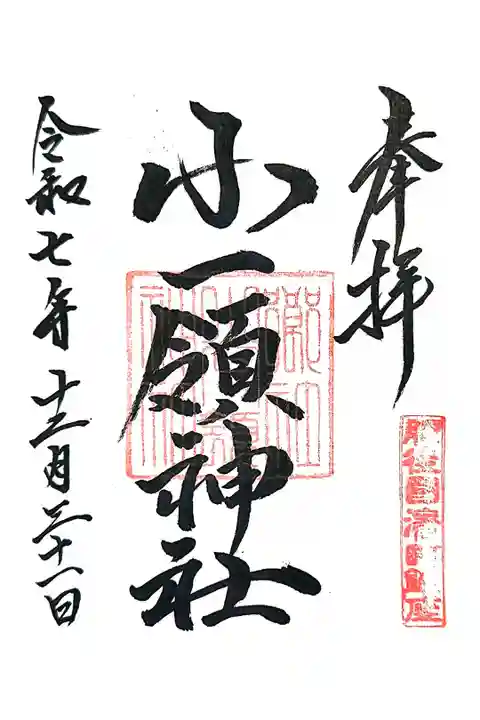 奉拝
小一領神社
令和七年十二月三十一日